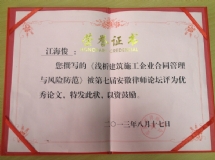 荣誉证书
江海俊：
您撰写的《浅析建筑施工企业合同管理
与风险防范》被第七届安徽律师论坛评为优
秀论文，特发此状，以资鼓励。
二〇一三年八月十七日